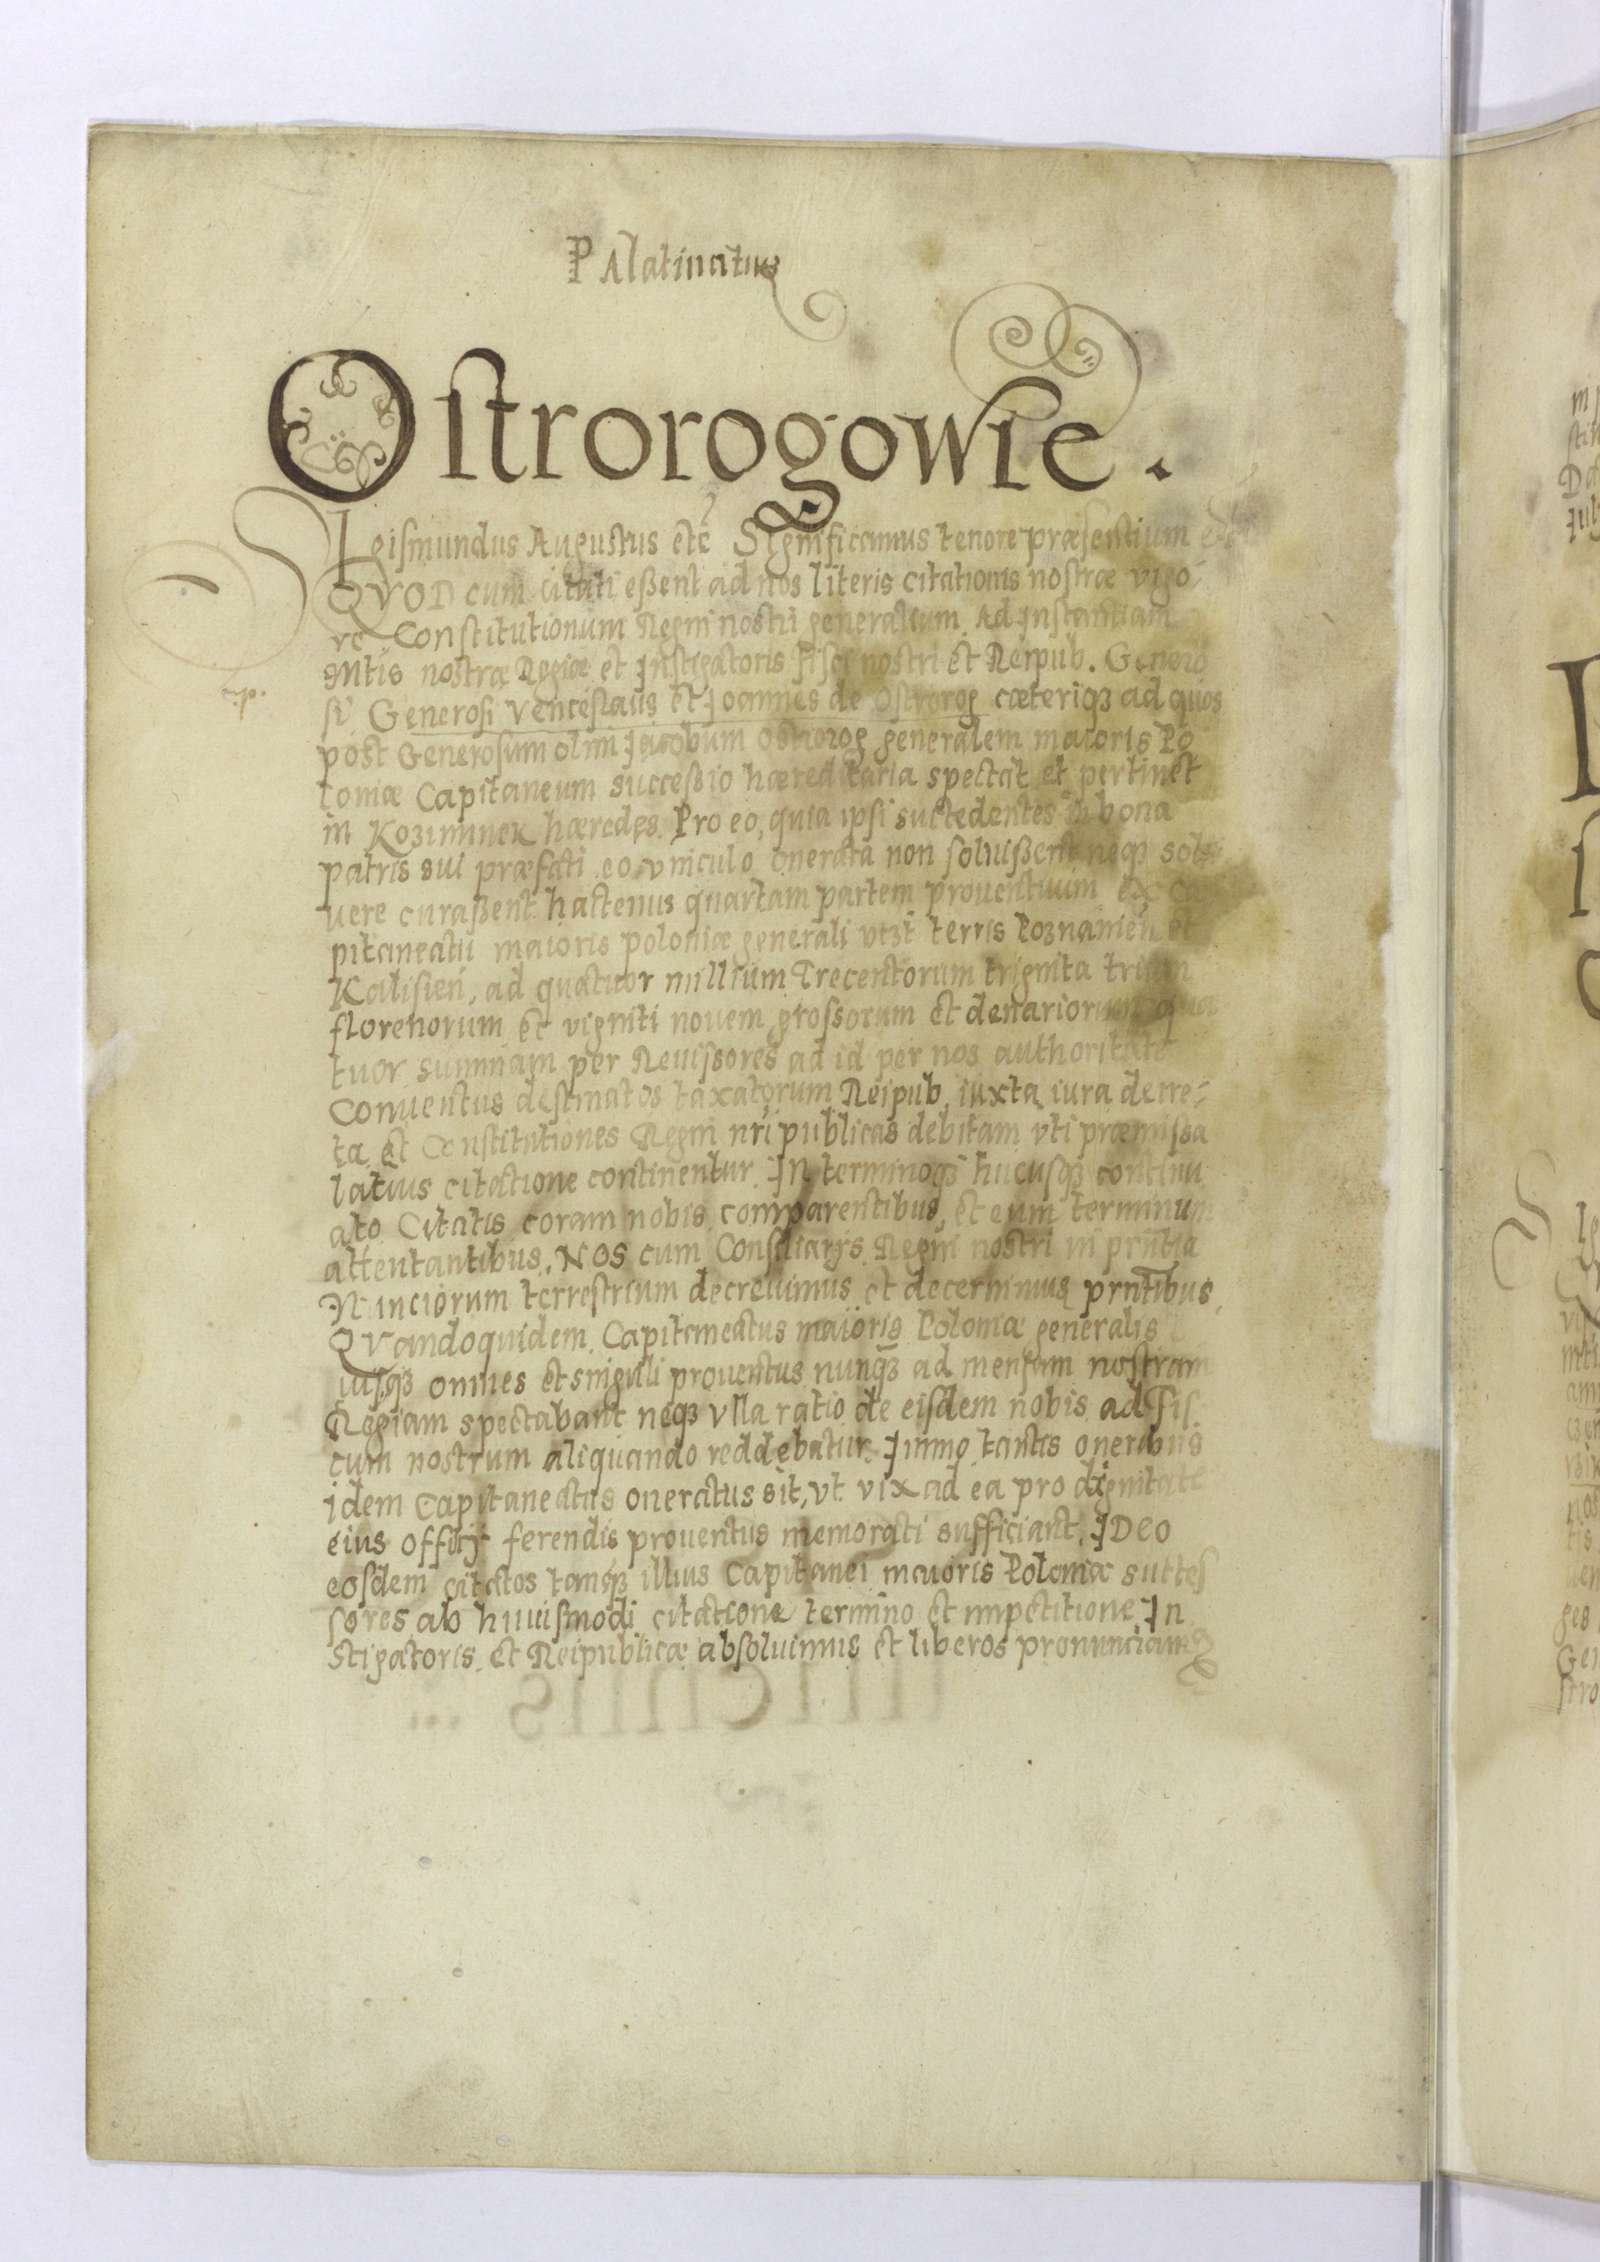 Palatinatus
Ostrorogowie.
Sigismundus Augustus etc Significamus tenore præsentium
QVOD cum citati eßent ad nos literis citationis nostræ vigo-
re Constitutionum Regni nostri generalium. Ad Instantiam
Mtis nostræ Regiæ et Instigatoris fisci nostri et Reipub. Genero
si Generosi Venceslaus et Joannes de Ostrorog cæteriq3 ad quos
post Generosum olim Jacobum Ostrorog generalem maioris Po
loniæ Capitaneum succeßio hæreditaria spectat et pertinet
in Kozminek hæredes. Pro eo, quia ipsi succedentes in bona
patris sui præfati eo vniculo onerata non soluißent neq3 sol
uere curaßent hactenus quartam partem prouentuum ex ca
pitaneatu maioris poloniæ generali vtzt terris Poznanien et
Kalisien, ad quatuor millium Trecentorum triginta trium
florenorum et viginti nouem grossorum et denariorum qua
tuor summam per Reuisores ad id per nos authoritate
Conuentus destinatos taxatorum Reipub. iuxta iura decre-
ta et Constitutiones Regni nri publicas debitam vti præmissa
latius citatione continentur. In terminoq3 hucusq3 continu
ato Citatis coram nobis comparentibus, et eum terminum
attentantibus. NOS cum Consiliarijs Regni nostri in prntia
Nunciorum terrestrium decreuimus et decernimus prntibus
QVandoquidem Capitaneatus maioris Poloniæ generalis
iusq3 omnes et singuli prouentus nunq3 ad mensam nostram
Regiam spectabant neq3 vlla ratio de eisdem nobis ad Fis
cum nostrum aliquando reddebatur. Immo tantis oneribus
idem Capitaneatus oneratus sit, vt vix ad ea pro dignitate
eius officij ferendis prouentus memorati sufficiant. IDEO
eosdem citatos tanq3 illius Capitanei maioris Poloniæ succes
sores ab huiusmodi citatione termino et impetitione In
stigatoris et Reipublicæ absoluimus et liberos pronunciamus